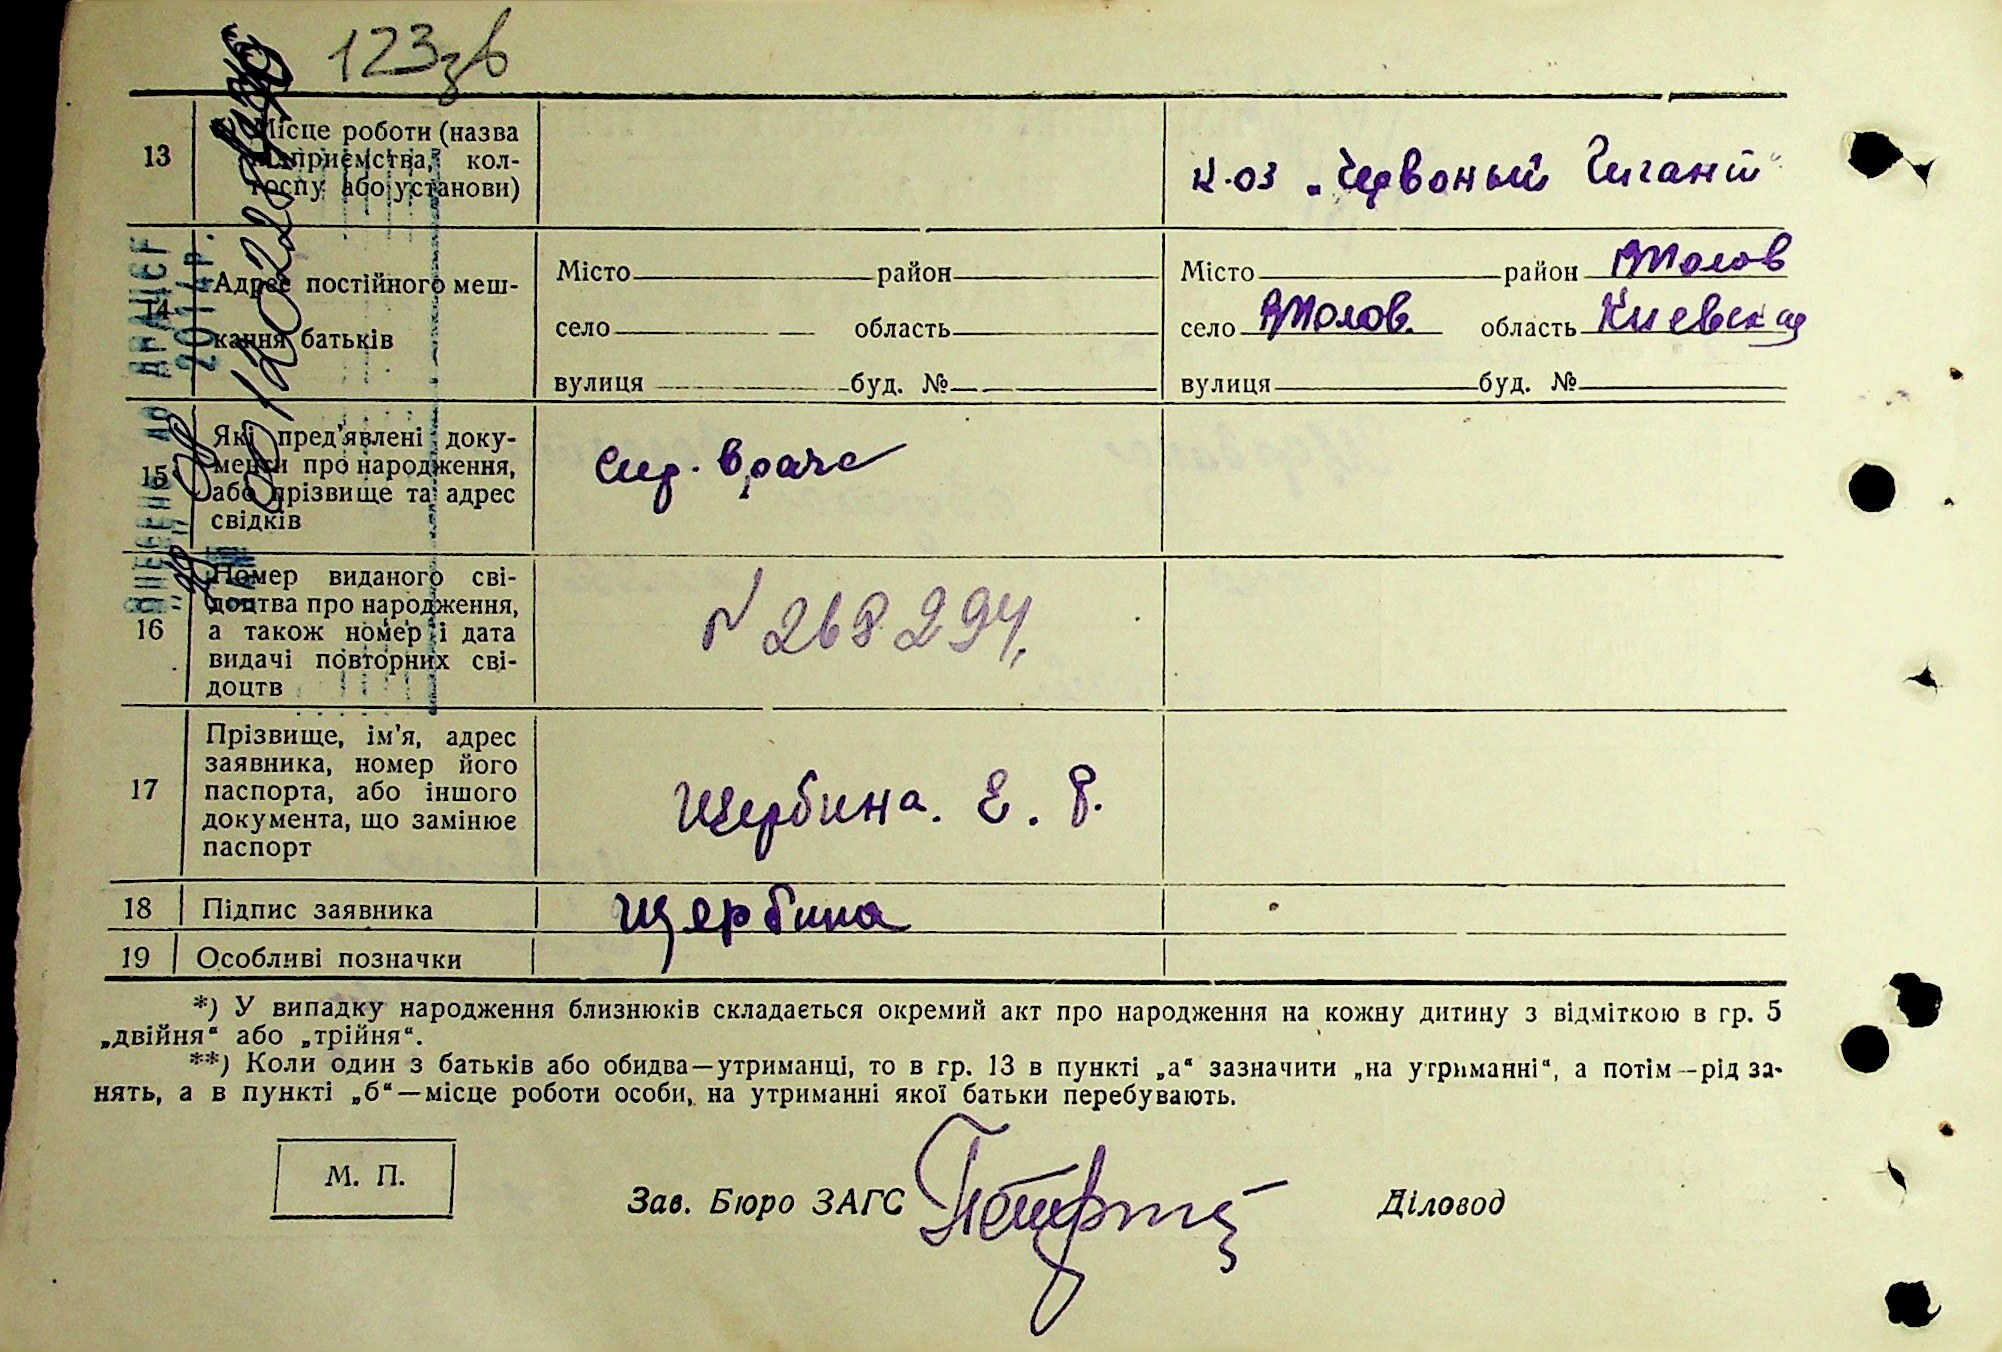 123зв
13 б) Місце роботи (назва
підприємства, кол-
госпу або установи)
к-оз „Червоный Гигант"
14 Адрес постійного меш-
кання батьків
Місто район
село область
вулиця буд. №
Місто район
село область Киевская
вулиця буд. №
15 Які пред'явлені доку-
менти про народження,
або прізвище та адрес
свідків
врача
16 Номер виданого сві-
доцтва про народження,
а також номер і дата
видачі повторних сві-
доцтв
N 268294
17 Прізвище, ім'я, адрес
заявника, номер його
паспорта, або іншого
документа, що замінює
паспорт
Щербина. Е. Р.
18 Підпис заявника
Щербина
19 Особливі позначки
*) У випадку народження близнюків складається окремий акт про народження на кожну дитину з відміткою в гр. 5
„двійня“ або „трійня“.
**) Коли один з батьків або обидва—утриманці, то в гр. 13 в пункті „а“ зазначити „на утриманні“, а потім—рід за-
нять, а в пункті „б“—місце роботи особи, на утриманні якої батьки перебувають.
М. П.
Зав. Бюро ЗАГС
Діловод
ВНЕСЕНО ДО ДРАЦСГ
201 р.